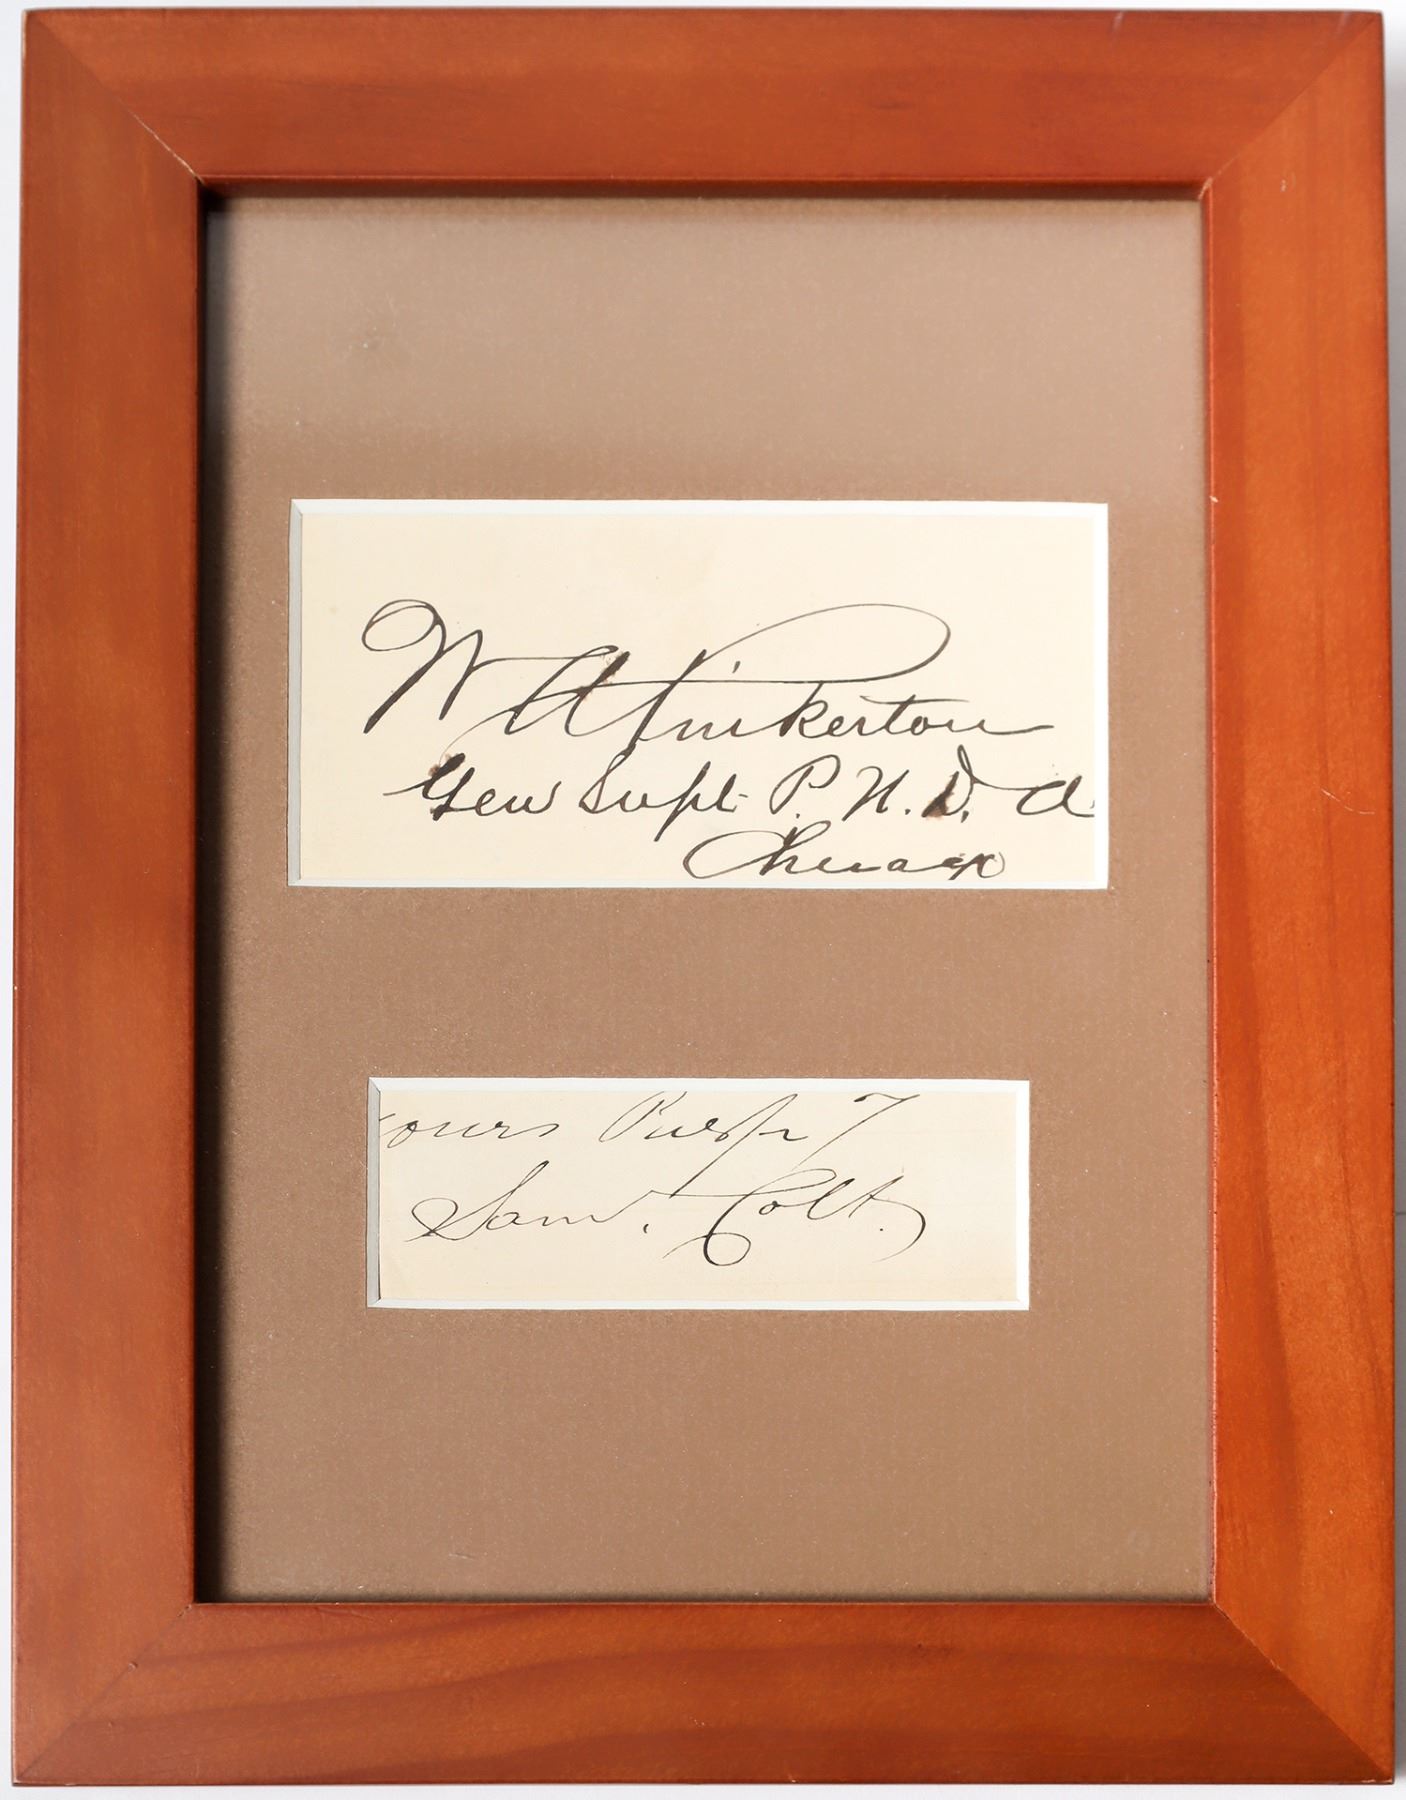 W A Pinkerton
Gen Supt P. N. D. A
Chicago
Yours Respy
Saml. Colt.